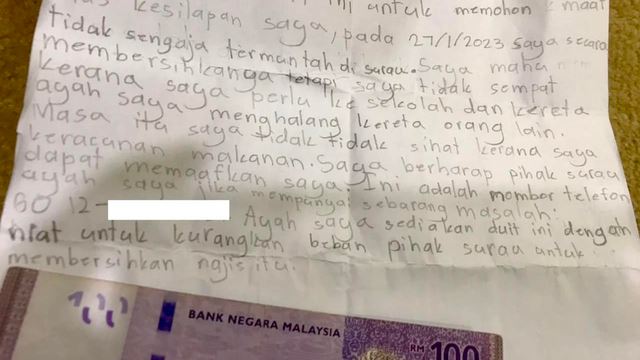 kesilapan saya, pada 27/1/2023 saya secara
ini untuk memohon maaf
tidak sengaja termuntah di surau. Saya mahu
membersihkanya tetapi saya tidak sempat
kerana saya perlu ke sekolah dan kereta
ayah saya menghalang kereta orang lain.
Masa itu saya tidak tidak sihat kerana saya
keracunan makanan. Saya berharap pihak surau
dapat memaafkan saya. Ini adalah nombor telefon
ayah saya jika mempunyai sebarang masalah:
60 12-
Ayah saya sediakan duit ini dengan
niat untuk kurangkan beban pihak surau untuk
membersihkan najis itu.
BANK NEGARA MALAYSIA
RM 100